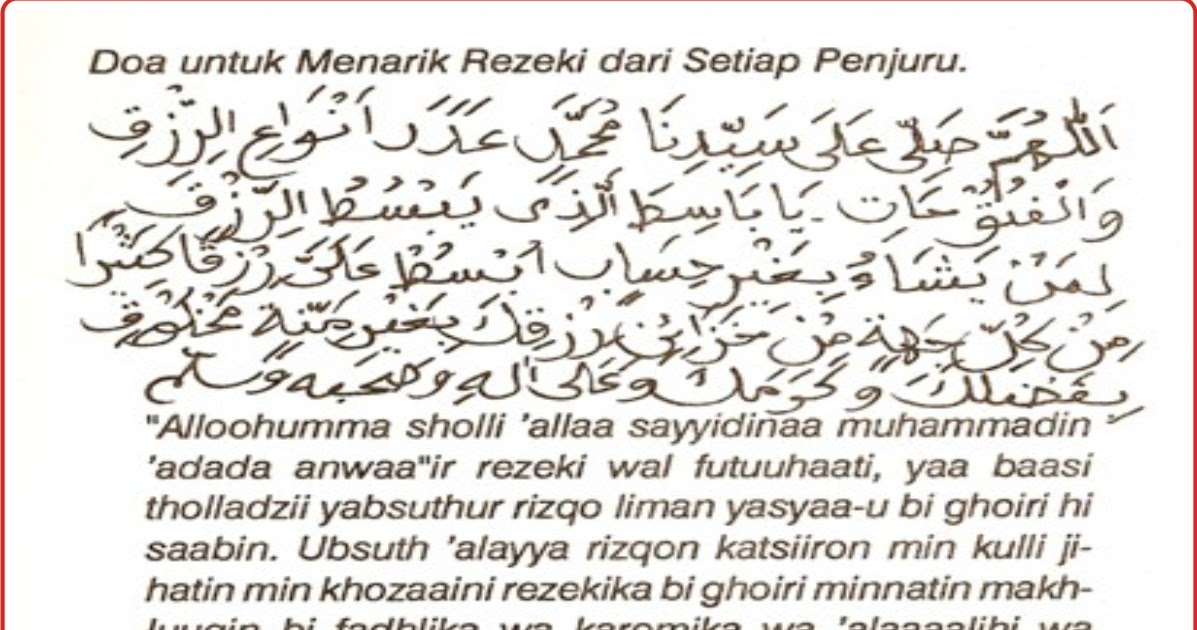 Doa untuk Menarik Rezeki dari Setiap Penjuru.
اَللّٰهُمَّ صَلِّى عَلَى سَيِّدِنَا مُحَمَّدٍ عَدَدَ اَنْوَاعِ الرِّزْقِ
وَالْفُتُوْحَاتِ. يَا بَاسِطَ الَّذِى يَبْسُطُ الرِّزْقَ
لِمَنْ يَشَاءُ بِغَيْرِ حِسَابٍ اُبْسُطْ عَلَىَّ رِزْقًا كَثِيْرًا
مِنْ كُلِّ جِهَةٍ مِنْ خَزَائِنِ رِزْقِكَ بِغَيْرِ مِنَّةٍ مَخْلُوْقٍ
بِفَضْلِكَ وَكَرَمِكَ وَعَلَى اٰلِهِ وَصَحْبِهِ وَسَلِّمْ
"Alloohumma sholli 'allaa sayyidinaa muhammadin
'adada anwaa"ir rezeki wal futuuhaati, yaa baasi
tholladzii yabsuthur rizqo liman yasyaa-u bi ghoiri hi
saabin. Ubsuth 'alayya rizqon katsiiron min kulli ji-
hatin min khozaaini rezekika bi ghoiri minnatin makh-
luuqin bi fadhlika wa karomika wa 'alaaaalihi wa